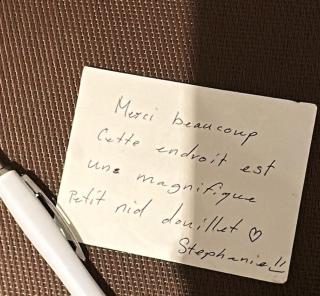 Merci beaucoup
Cette endroit est
une magnifique
Petit nid douillet ♡
Stephanie!!